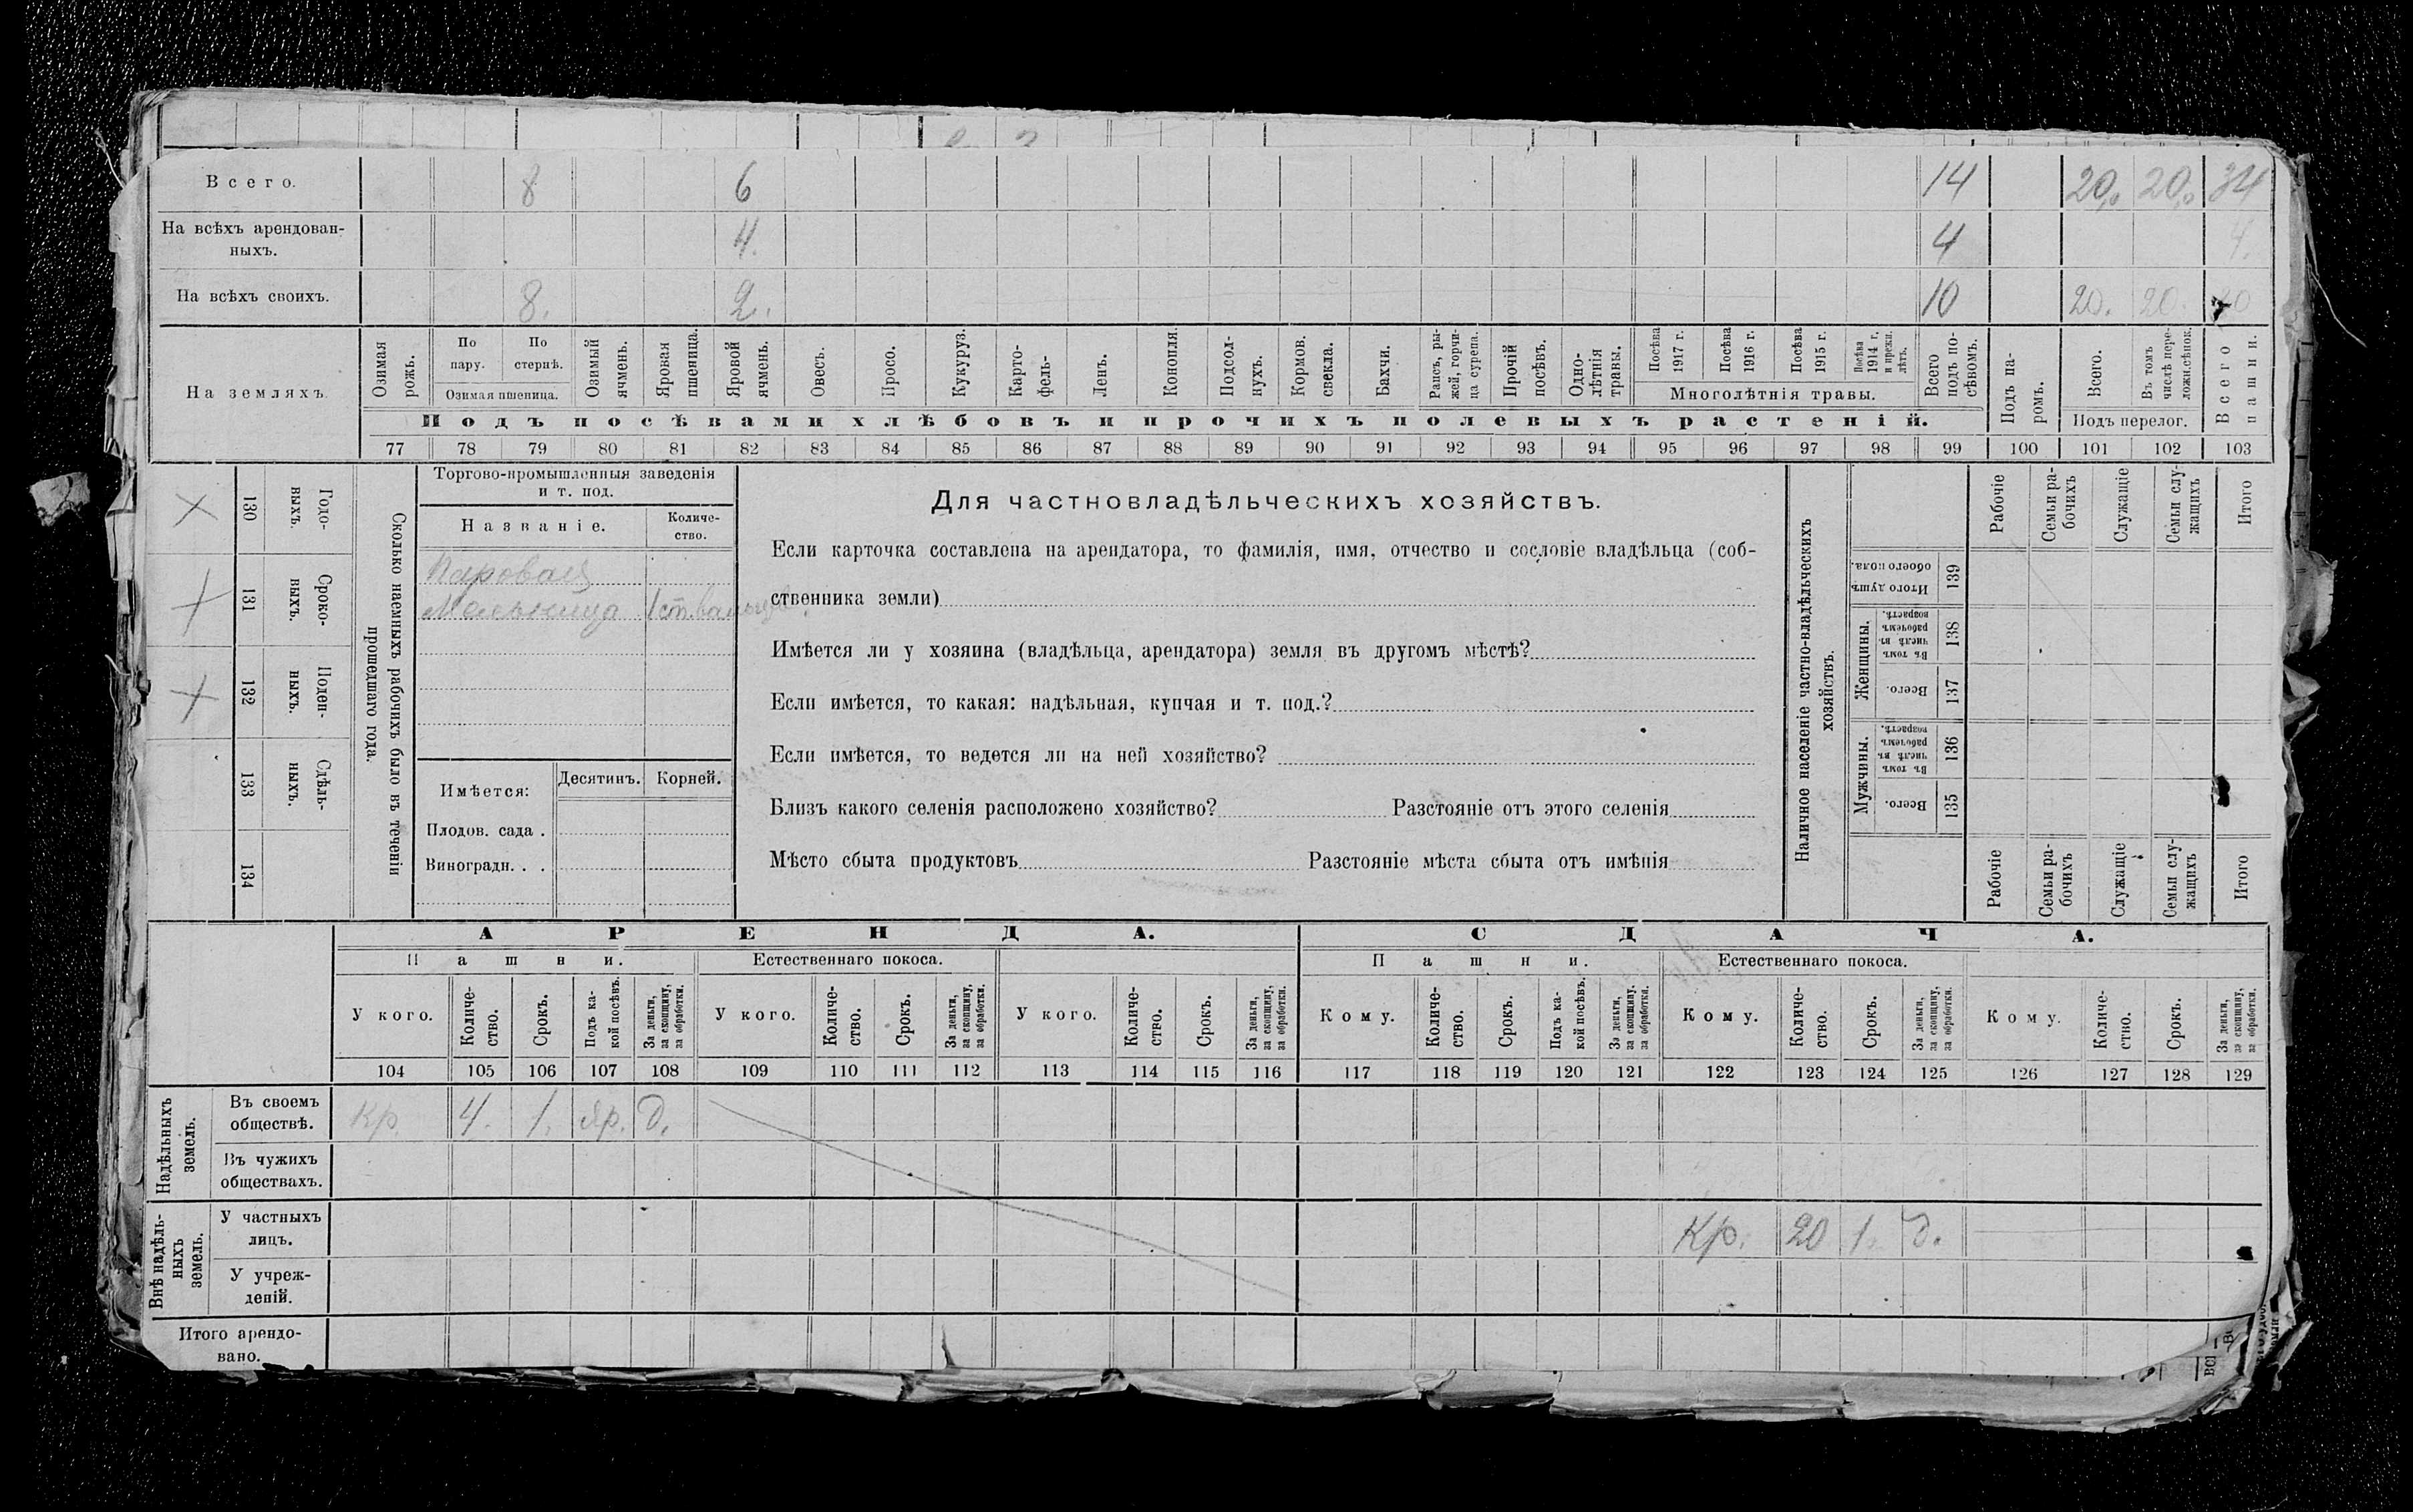 Всего. 8 6 14 20,0 20,0 34
На всѣхъ арендован-
ныхъ. 4. 4 4.
На всѣхъ своихъ. 8. 2. 10 20. 20.
На земляхъ.
Озимая рожь.
По пару.
По стернѣ.
Озимая пшеница.
Озимый ячмень.
Яровая пшеница.
Яровой ячмень.
Овесъ.
Просо.
Кукуруз.
Карто-
фель-
Ленъ.
Конопля.
Подсол-
нухъ.
Кормов.
свекла.
Бахчи.
Рапсъ, ры-
жей, горчи-
ца сурепа.
Прочій
посѣвъ.
Одно-
лѣтнія
травы.
Посѣва 1917 г.
Посѣва 1916 г.
Посѣва 1915 г.
Посѣва 1914 г. и прежн. лѣтъ.
Многолѣтнія травы.
Всего подъ по-
сѣвомъ.
Подъ па-
ромъ.
Всего.
Въ томъ числѣ пере-
ложн.сѣнок.
Подъ перелог.
Всего пашни.
Подъ посѣвами хлѣбовъ и прочихъ полевыхъ растеній.
77 78 79 80 81 82 83 84 85 86 87 88 89 90 91 92 93 94 95 96 97 98 99 100 101 102 103
Годо-
выхъ.
130
Сроко-
выхъ.
131
Поден-
ныхъ.
132
Сдѣль-
ныхъ.
133
134
Сколько наемныхъ рабочихъ было въ теченіи
прошедшаго года.
Торгово-промышленныя заведенія
и т. под.
Названіе.
Количе-
ство.
Паровая
Мельница 1
Имѣется: Десятинъ. Корней.
Плодов. сада .
Виноградн. . .
Для частновладѣльческихъ хозяйствъ.
Если карточка составлена на арендатора, то фамилія, имя, отчество и сословіе владѣльца (соб-
ственника земли)
Имѣется ли у хозяина (владѣльца, арендатора) земля въ другомъ мѣстѣ?
Если имѣется, то какая: надѣльная, купчая и т. под.?
Если имѣется, то ведется ли на ней хозяйство?
Близъ какого селенія расположено хозяйство? Разстояніе отъ этого селенія
Мѣсто сбыта продуктовъ Разстояніе мѣста сбыта отъ имѣнія
Наличное населеніе частно-владѣльческихъ
хозяйствъ.
Рабочіе
Семьи ра-
бочихъ
Служащіе
Семьи слу-
жащихъ
Итого
Итого душъ
обоего пола.
139
Женщины.
Въ томъ числѣ въ рабочемъ возрастѣ.
138
Всего.
137
Мужчины.
Въ томъ числѣ въ рабочемъ возрастѣ.
136
Всего.
135
Рабочіе
Семьи ра-
бочихъ
Служащіе
Семьи слу-
жащихъ
Итого
АРЕНДА. СДАЧА.
Пашни. Естественнаго покоса. Пашни. Естественнаго покоса.
У кого.
Количе-
ство.
Срокъ.
Подъ ка-
кой посѣвъ.
За деньги,
за скопщину,
за обработки.
У кого.
Количе-
ство.
Срокъ.
За деньги,
за скопщину,
за обработки.
У кого.
Количе-
ство.
Срокъ.
За деньги,
за скопщину,
за обработки.
Кому.
Количе-
ство.
Срокъ.
Подъ ка-
кой посѣвъ.
За деньги,
за скопщину.
за обработки.
Кому.
Количе-
ство.
Срокъ.
За деньги,
за скопщину,
за обработки.
Кому.
Количе-
ство.
Срокъ.
За деньги,
за скопщину,
за обработки.
104 105 106 107 108 109 110 111 112 113 114 115 116 117 118 119 120 121 122 123 124 125 126 127 128 129
Надѣльныхъ
земель.
Въ своемъ
обществѣ. Кр. 4. 1. яр. д.
Въ чужихъ
обществахъ.
Внѣ надѣль-
ныхъ
земель.
У частныхъ
лицъ. Кр. 20 1. д.
У учреж-
деній.
Итого арендо-
вано.